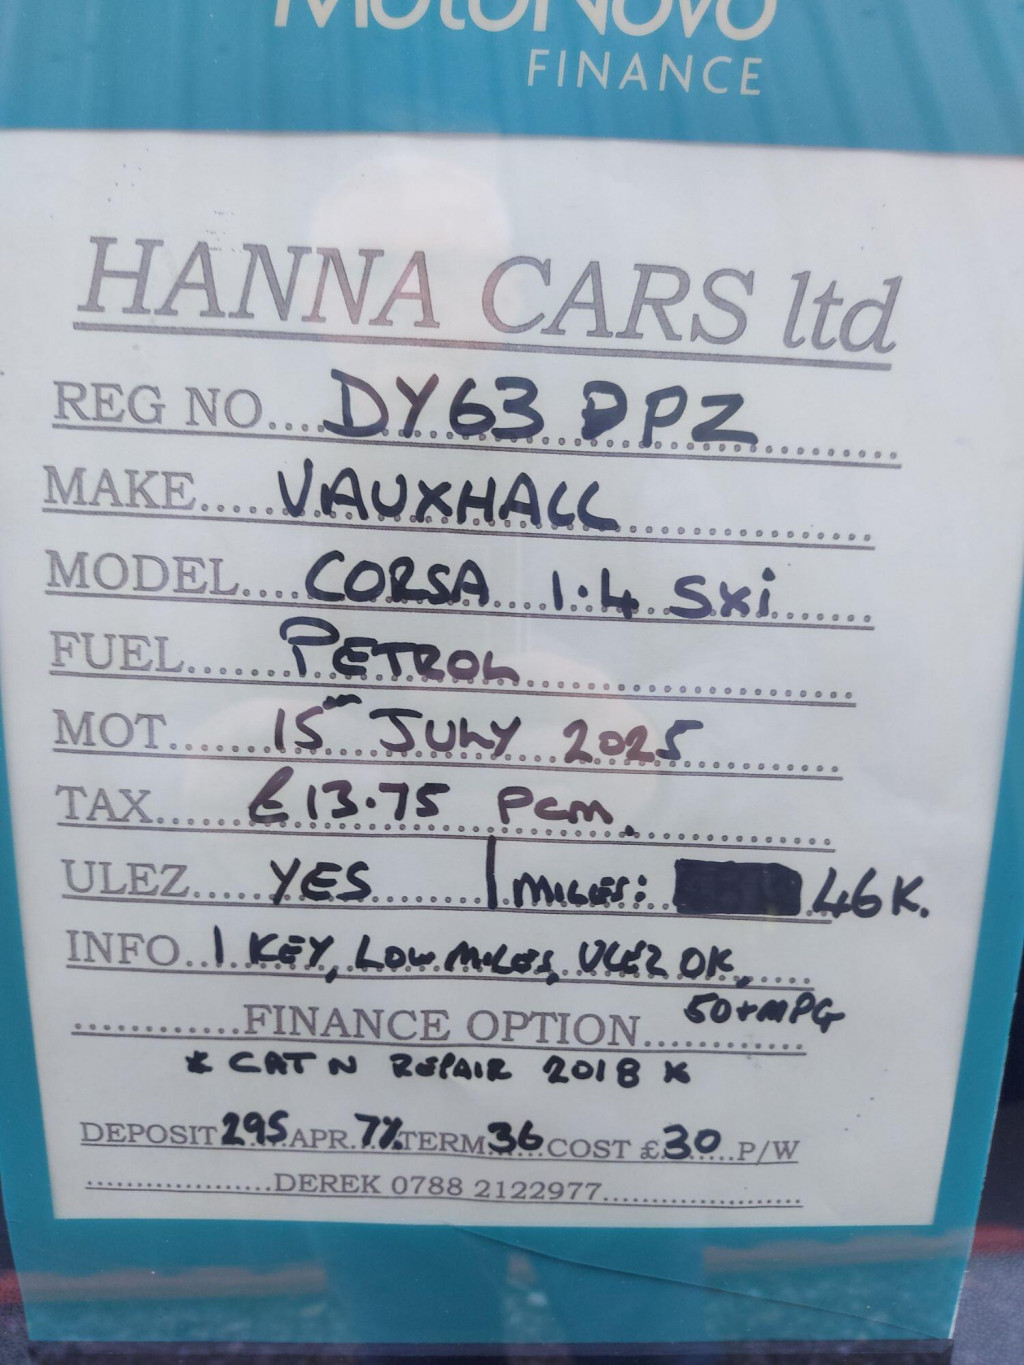 MotoNovo
FINANCE
HANNA CARS ltd
REG NO....DY63 DPZ
MAKE.....VAUXHALL
MODEL....CORSA 1.4 Sxi
FUEL......PETROL
MOT.......15th JULY 2025
TAX......£13.75 Pcm.
ULEZ.....YES | MILES: 46K.
INFO..1 KEY, LOW MILES, ULEZ OK,
50+MPG
............FINANCE OPTION............
* CAT N REPAIR 2018 *
DEPOSIT 295 APR.7% TERM 36 COST £30 P/W
..................DEREK 0788 2122977...................